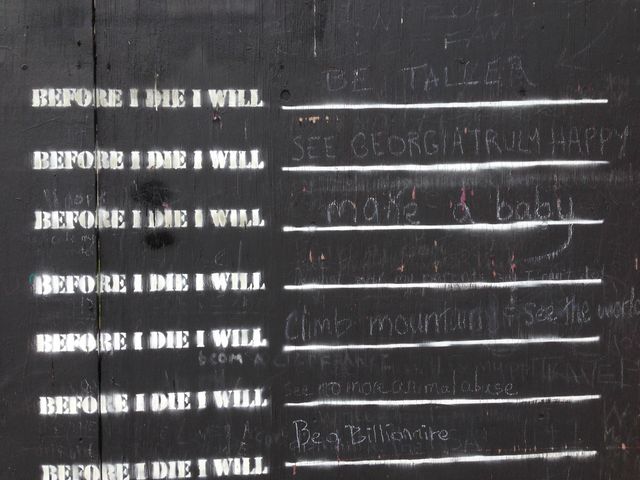 BEFORE I DIE I WILL BE TALLER
BEFORE I DIE I WILL SEE GEORGIA TRULY HAPPY
BEFORE I DIE I WILL make a baby
BEFORE I DIE I WILL
BEFORE I DIE I WILL Climb mountain & see the world
BEFORE I DIE I WILL see no more animal abuse
BEFORE I DIE I WILL Be a Billionire